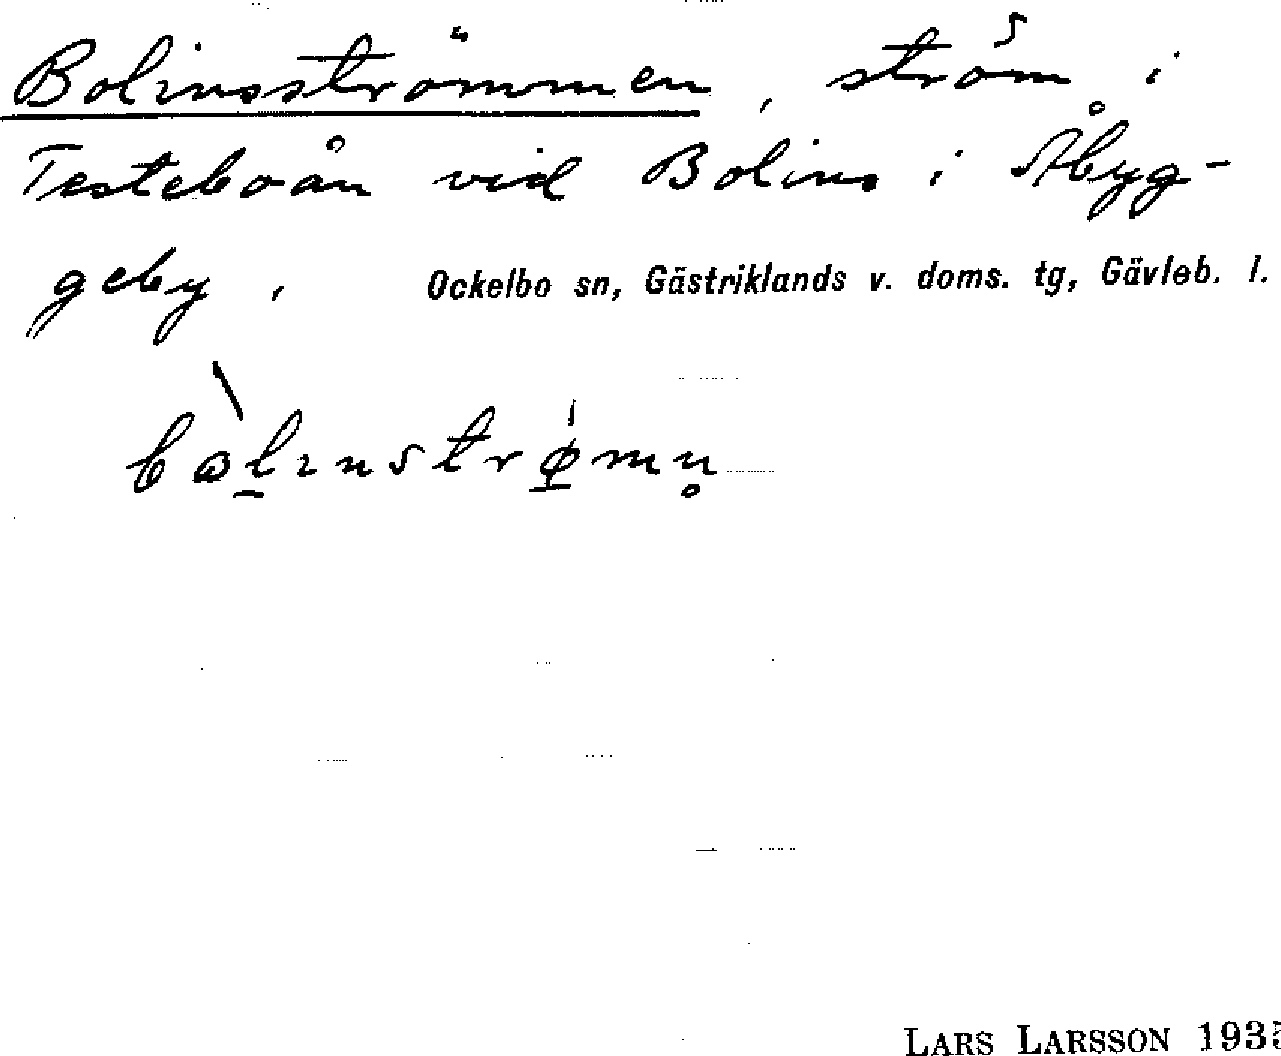 Bolinsströmmen, ström i
Testeboån vid Bolins i Åbyg-
geby, Ockelbo sn, Gästriklands v. doms. tg, Gävleb. l.
LARS LARSSON